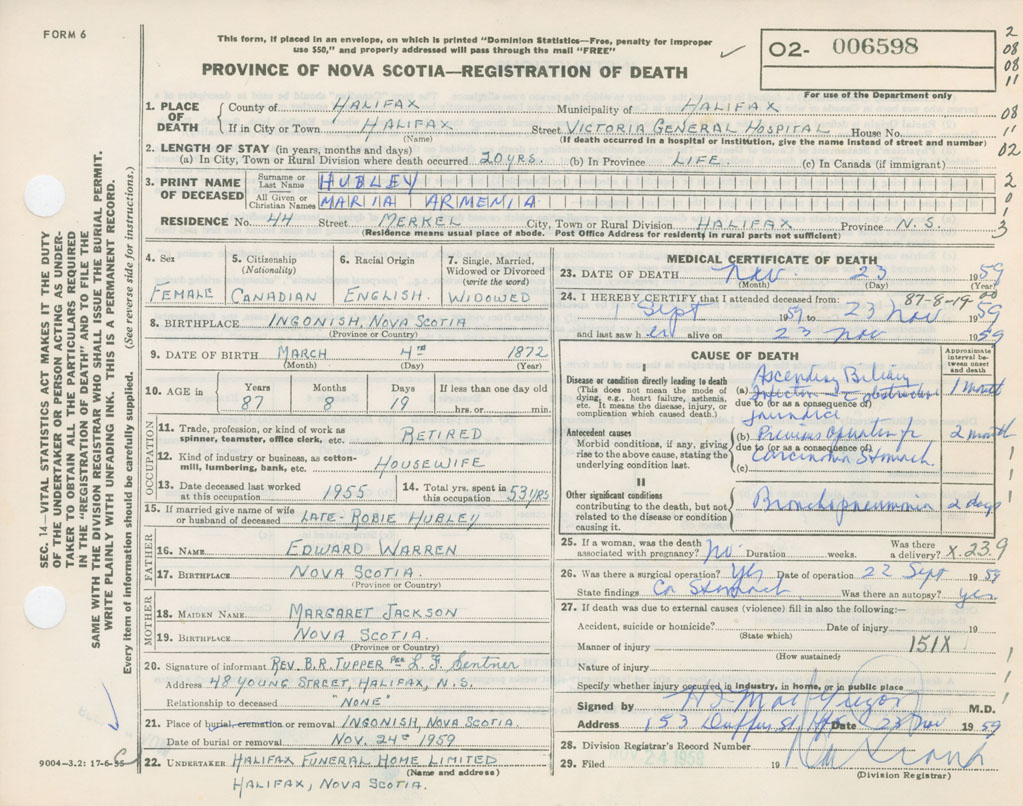 FORM 6
This form, if placed in an envelope, on which is printed "Dominion Statistics—Free, penalty for improper
use $50," and properly addressed will pass through the mail "FREE"
O2- 006598
For use of the Department only
PROVINCE OF NOVA SCOTIA—REGISTRATION OF DEATH
1. PLACE OF DEATH
County of HALIFAX Municipality of HALIFAX
If in City or Town HALIFAX Street VICTORIA GENERAL HOSPITAL House No.
(Name) (If death occurred in a hospital or institution, give the name instead of street and number)
2. LENGTH OF STAY (in years, months and days)
(a) In City, Town or Rural Division where death occurred 20 YRS. (b) In Province LIFE. (c) In Canada (if immigrant)
3. PRINT NAME OF DECEASED
Surname or Last Name HUBLEY
All Given or Christian Names MARIA ARMENIA
RESIDENCE No. 44 Street MERKEL City, Town or Rural Division HALIFAX Province N.S.
(Residence means usual place of abode. Post Office Address for residents in rural parts not sufficient)
4. Sex
FEMALE
5. Citizenship (Nationality)
CANADIAN
6. Racial Origin
ENGLISH.
7. Single, Married, Widowed or Divorced (write the word)
WIDOWED
8. BIRTHPLACE INGONISH, NOVA SCOTIA
(Province or Country)
9. DATE OF BIRTH MARCH 4TH 1872
(Month) (Day) (Year)
10. AGE in
Years Months Days If less than one day old
87 8 19 hrs. or min.
OCCUPATION
11. Trade, profession, or kind of work as
spinner, teamster, office clerk, etc. RETIRED
12. Kind of industry or business, as cotton-
mill, lumbering, bank, etc. HOUSEWIFE
13. Date deceased last worked at this occupation 1955
14. Total yrs. spent in this occupation 53 YRS
15. If married give name of wife
or husband of deceased LATE-ROBIE HUBLEY
FATHER
16. NAME EDWARD WARREN
17. BIRTHPLACE NOVA SCOTIA.
(Province or Country)
MOTHER
18. MAIDEN NAME MARGARET JACKSON
19. BIRTHPLACE NOVA SCOTIA.
(Province or Country)
20. Signature of informant REV. B.R. TUPPER PER L. F. Sentner
Address 48 YOUNG STREET, HALIFAX, N.S.
Relationship to deceased "NONE"
21. Place of burial, cremation or removal INGONISH, NOVA SCOTIA.
Date of burial or removal NOV. 24TH 1959
22. UNDERTAKER HALIFAX FUNERAL HOME LIMITED
(Name and address)
HALIFAX, NOVA SCOTIA.
MEDICAL CERTIFICATE OF DEATH
23. DATE OF DEATH Nov. 23 1959
(Month) (Day) (Year)
24. I HEREBY CERTIFY that I attended deceased from: 87-8-19 00
1 Sept 1959 to 23 Nov 1959
and last saw her alive on 23 Nov 1959
CAUSE OF DEATH
Approximate interval between onset and death
I
Disease or condition directly leading to death
(This does not mean the mode of
dying, e.g., heart failure, asthenia,
etc. It means the disease, injury, or
complication which caused death.)
(a) Ascending Biliary
Infection c obstructive 1 month
due to (or as a consequence of)
jaundice
Antecedent causes
Morbid conditions, if any, giving
rise to the above cause, stating the
underlying condition last.
(b) Previous Operation for 2 month
due to (or as a consequence of)
Carcinoma Stomach.
(c)
II
Other significant conditions
contributing to the death, but not
related to the disease or condition
causing it.
Bronchopneumonia 2 days
25. If a woman, was the death
associated with pregnancy? no. Duration weeks. Was there a delivery? X.23.9
26. Was there a surgical operation? yes Date of operation 22 Sept 1959
State findings Ca Stomach Was there an autopsy? yes.
27. If death was due to external causes (violence) fill in also the following:—
Accident, suicide or homicide? Date of injury 19
(State which)
Manner of injury 151X
(How sustained)
Nature of injury
Specify whether injury occurred in industry, in home, or in public place
Signed by H I MacGregor M.D.
Address 153 Duffus St, Hfx Date 23 Nov 1959
28. Division Registrar's Record Number
29. Filed NOV 24 1959 19
(Division Registrar)
SEC. 14—VITAL STATISTICS ACT MAKES IT THE DUTY
OF THE UNDERTAKER OR PERSON ACTING AS UNDER-
TAKER TO OBTAIN ALL THE PARTICULARS REQUIRED
IN THE "REGISTRATION OF DEATH" AND TO FILE THE
SAME WITH THE DIVISION REGISTRAR WHO SHALL ISSUE THE BURIAL PERMIT.
WRITE PLAINLY WITH UNFADING INK. THIS IS A PERMANENT RECORD.
Every item of information should be carefully supplied. (See reverse side for instructions.)
9004-3.2: 17-6-55
2
08
08
11
08
11
02
2
0
1
3